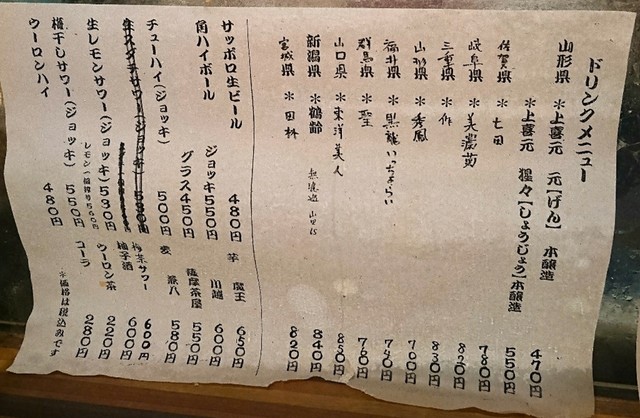 ドリンクメニュー
山形県 *上喜元 元【げん】 本醸造 470円
*上喜元 猩々【しょうじょう】本醸造 550円
佐賀県 *七田 780円
岐阜県 *美濃菊 820円
三重県 *作 830円
山形県 *秀鳳 700円
福井県 *黒龍いっちょらい 740円
群馬県 *聖 780円
山口県 *東洋美人 880円
新潟県 *鶴齢 無濾過 840円
宮城県 *田林 820円
サッポロ生ビール 480円
角ハイボール ジョッキ550円
グラス450円
チューハイ(ジョッキ) 500円
生レモンサワー(ジョッキ)530円
梅干しサワー(ジョッキ) 550円
ウーロンハイ 480円
芋 魔王 650円
川越 600円
薩摩茶屋 550円
麦 兼八 580円
サワー 600円
柚子酒 600円
ウーロン茶 220円
コーラ 280円
*価格は税込みです